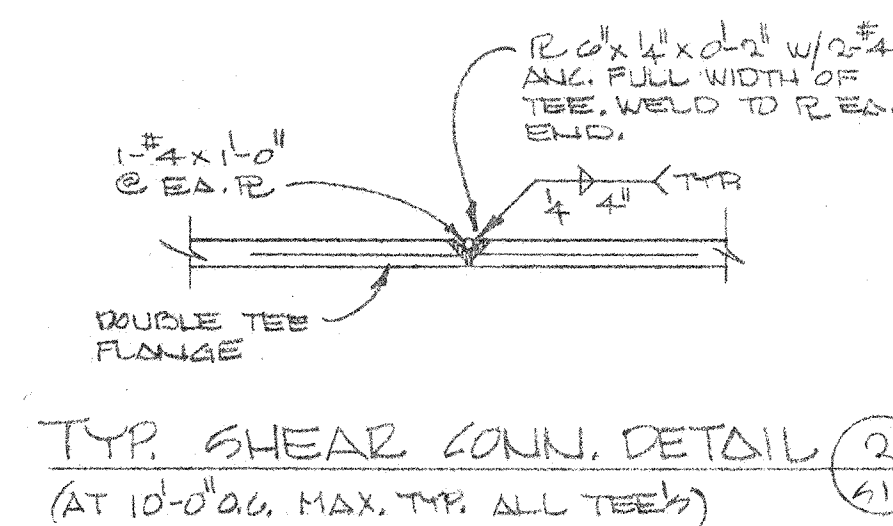 ℄ 6"x 1/4"x 0'-2" W/2-#4
ANC. FULL WIDTH OF
TEE. WELD TO ℄ EA.
END.
1-#4 x 1'-0"
@ EA. ℄
1/4 4" TYP.
DOUBLE TEE
FLANGE
TYP. SHEAR CONN. DETAIL 2
S1
(AT 10'-0" O.C. MAX. TYP. ALL TEE'S)